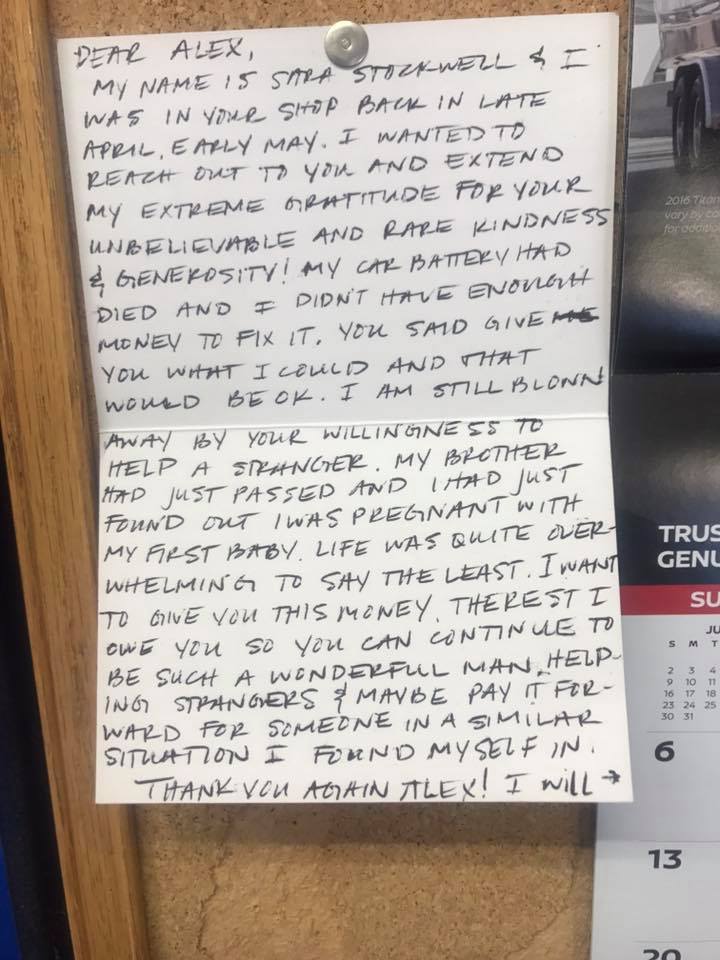 DEAR ALEX,
MY NAME IS SARA STOCKWELL & I
WAS IN YOUR SHOP BACK IN LATE
APRIL, EARLY MAY. I WANTED TO
REACH OUT TO YOU AND EXTEND
MY EXTREME GRATITUDE FOR YOUR
UNBELIEVABLE AND RARE KINDNESS
& GENEROSITY! MY CAR BATTERY HAD
DIED AND I DIDN'T HAVE ENOUGH
MONEY TO FIX IT. YOU SAID GIVE
YOU WHAT I COULD AND THAT
WOULD BE OK. I AM STILL BLOWN
AWAY BY YOUR WILLINGNESS TO
HELP A STRANGER. MY BROTHER
HAD JUST PASSED AND I HAD JUST
FOUND OUT I WAS PREGNANT WITH
MY FIRST BABY. LIFE WAS QUITE OVER-
WHELMING TO SAY THE LEAST. I WANT
TO GIVE YOU THIS MONEY, THE REST I
OWE YOU SO YOU CAN CONTINUE TO
BE SUCH A WONDERFUL MAN, HELP-
ING STRANGERS & MAYBE PAY IT FOR-
WARD FOR SOMEONE IN A SIMILAR
SITUATION I FOUND MYSELF IN.
THANK YOU AGAIN ALEX! I WILL →
2016 Titan
vary by co
for additio
TRUS
GENU
SU
JU
S M T
2 3 4
9 10 11
16 17 18
23 24 25
30 31
6
13
20